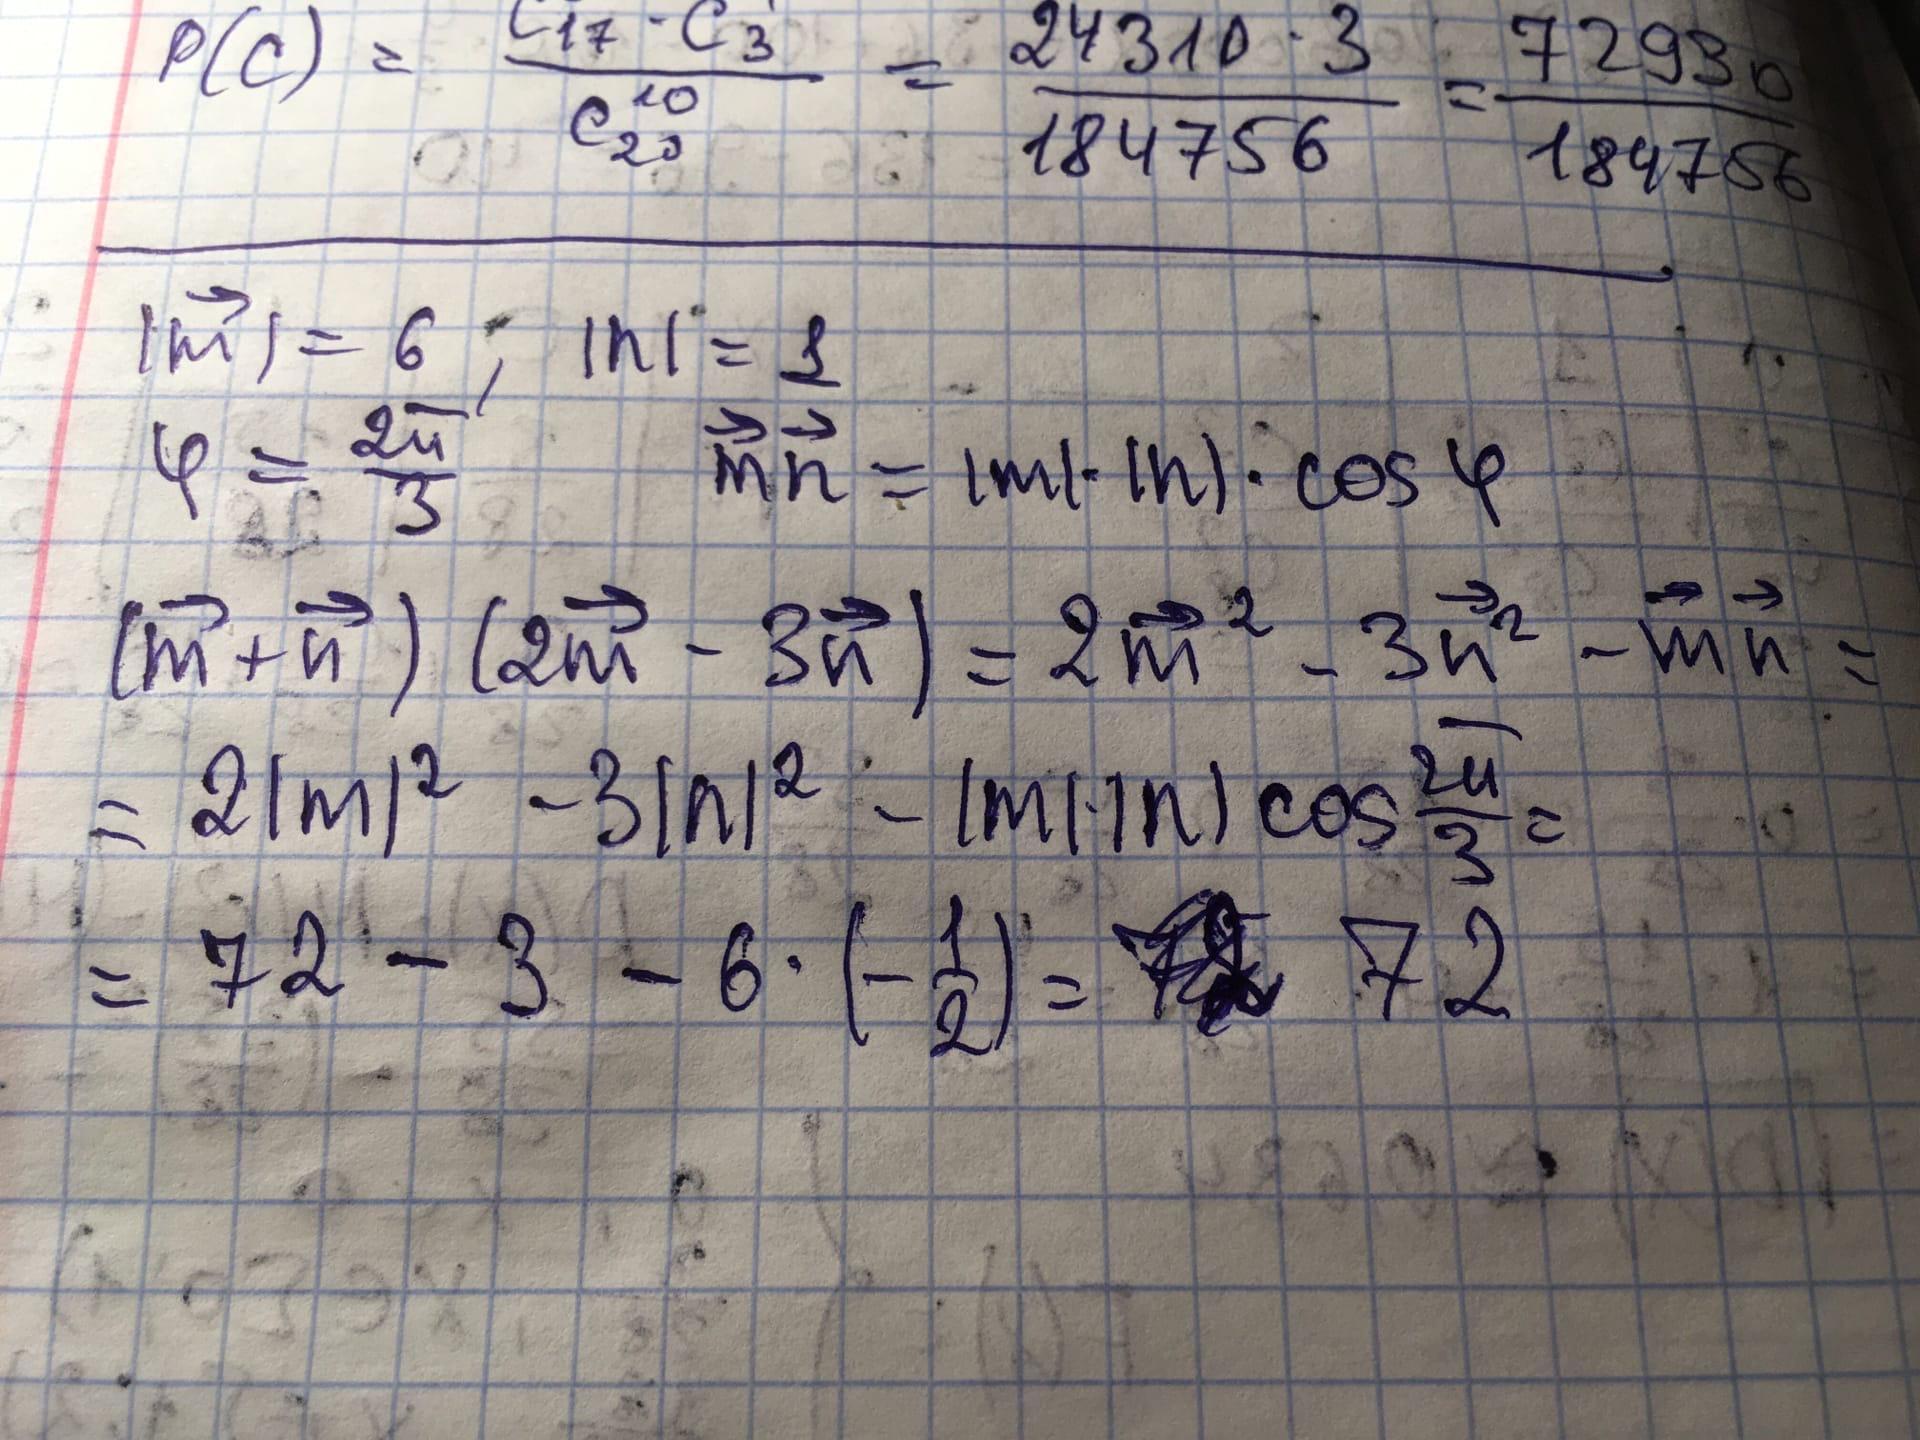 P(C) = C₁₇ · C₃ / C₂₀¹⁰ = 24310 · 3 / 184756 = 72930 / 184756
|m⃗| = 6, |n| = 1
φ = 2π/3 m⃗n⃗ = |m|·|n|· cos φ
(m⃗ + n⃗) (2m⃗ - 3n⃗) = 2m⃗² - 3n⃗² - m⃗n⃗ =
= 2|m|² - 3|n|² - |m|·|n| cos 2π/3 =
= 72 - 3 - 6 · (-1/2) = 72